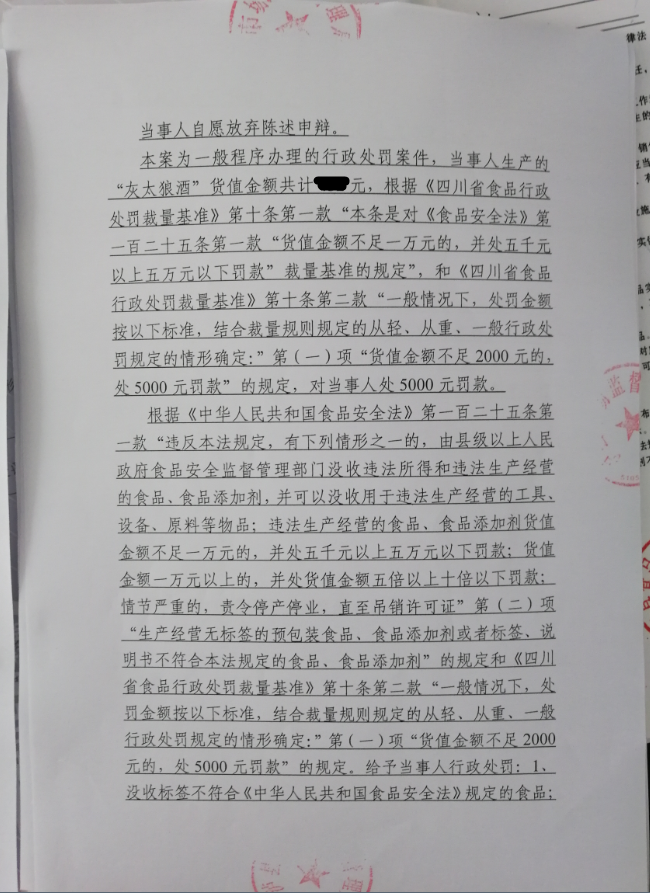 当事人自愿放弃陈述申辩。
本案为一般程序办理的行政处罚案件，当事人生产的
“灰太狼酒”货值金额共计元，根据《四川省食品行政
处罚裁量基准》第十条第一款“本条是对《食品安全法》第
一百二十五条第一款“货值金额不足一万元的，并处五千元
以上五万元以下罚款”裁量基准的规定”，和《四川省食品
行政处罚裁量基准》第十条第二款“一般情况下，处罚金额
按以下标准，结合裁量规则规定的从轻、从重、一般行政处
罚规定的情形确定：”第（一）项“货值金额不足 2000 元的，
处 5000 元罚款”的规定，对当事人处 5000 元罚款。
根据《中华人民共和国食品安全法》第一百二十五条第
一款“违反本法规定，有下列情形之一的，由县级以上人民
政府食品安全监督管理部门没收违法所得和违法生产经营
的食品、食品添加剂，并可以没收用于违法生产经营的工具、
设备、原料等物品；违法生产经营的食品、食品添加剂货值
金额不足一万元的，并处五千元以上五万元以下罚款；货值
金额一万元以上的，并处货值金额五倍以上十倍以下罚款；
情节严重的，责令停产停业，直至吊销许可证”第（二）项
“生产经营无标签的预包装食品、食品添加剂或者标签、说
明书不符合本法规定的食品、食品添加剂”的规定和《四川
省食品行政处罚裁量基准》第十条第二款“一般情况下，处
罚金额按以下标准，结合裁量规则规定的从轻、从重、一般
行政处罚规定的情形确定：”第（一）项“货值金额不足 2000
元的，处 5000 元罚款”的规定。给予当事人行政处罚：1、
没收标签不符合《中华人民共和国食品安全法》规定的食品；
律法
监督